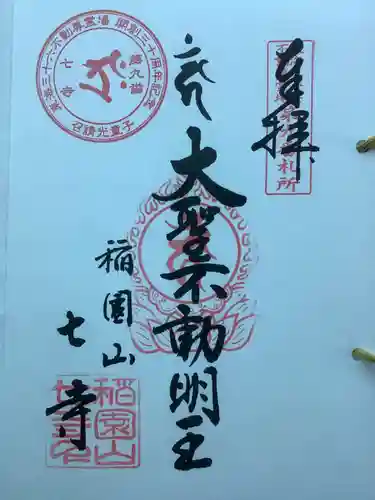 奉拝
大聖不動明王
稲園山
七寺
東海三十六不動尊霊場 開創三十周年記念
第九番
七寺
召請光童子
稲園山